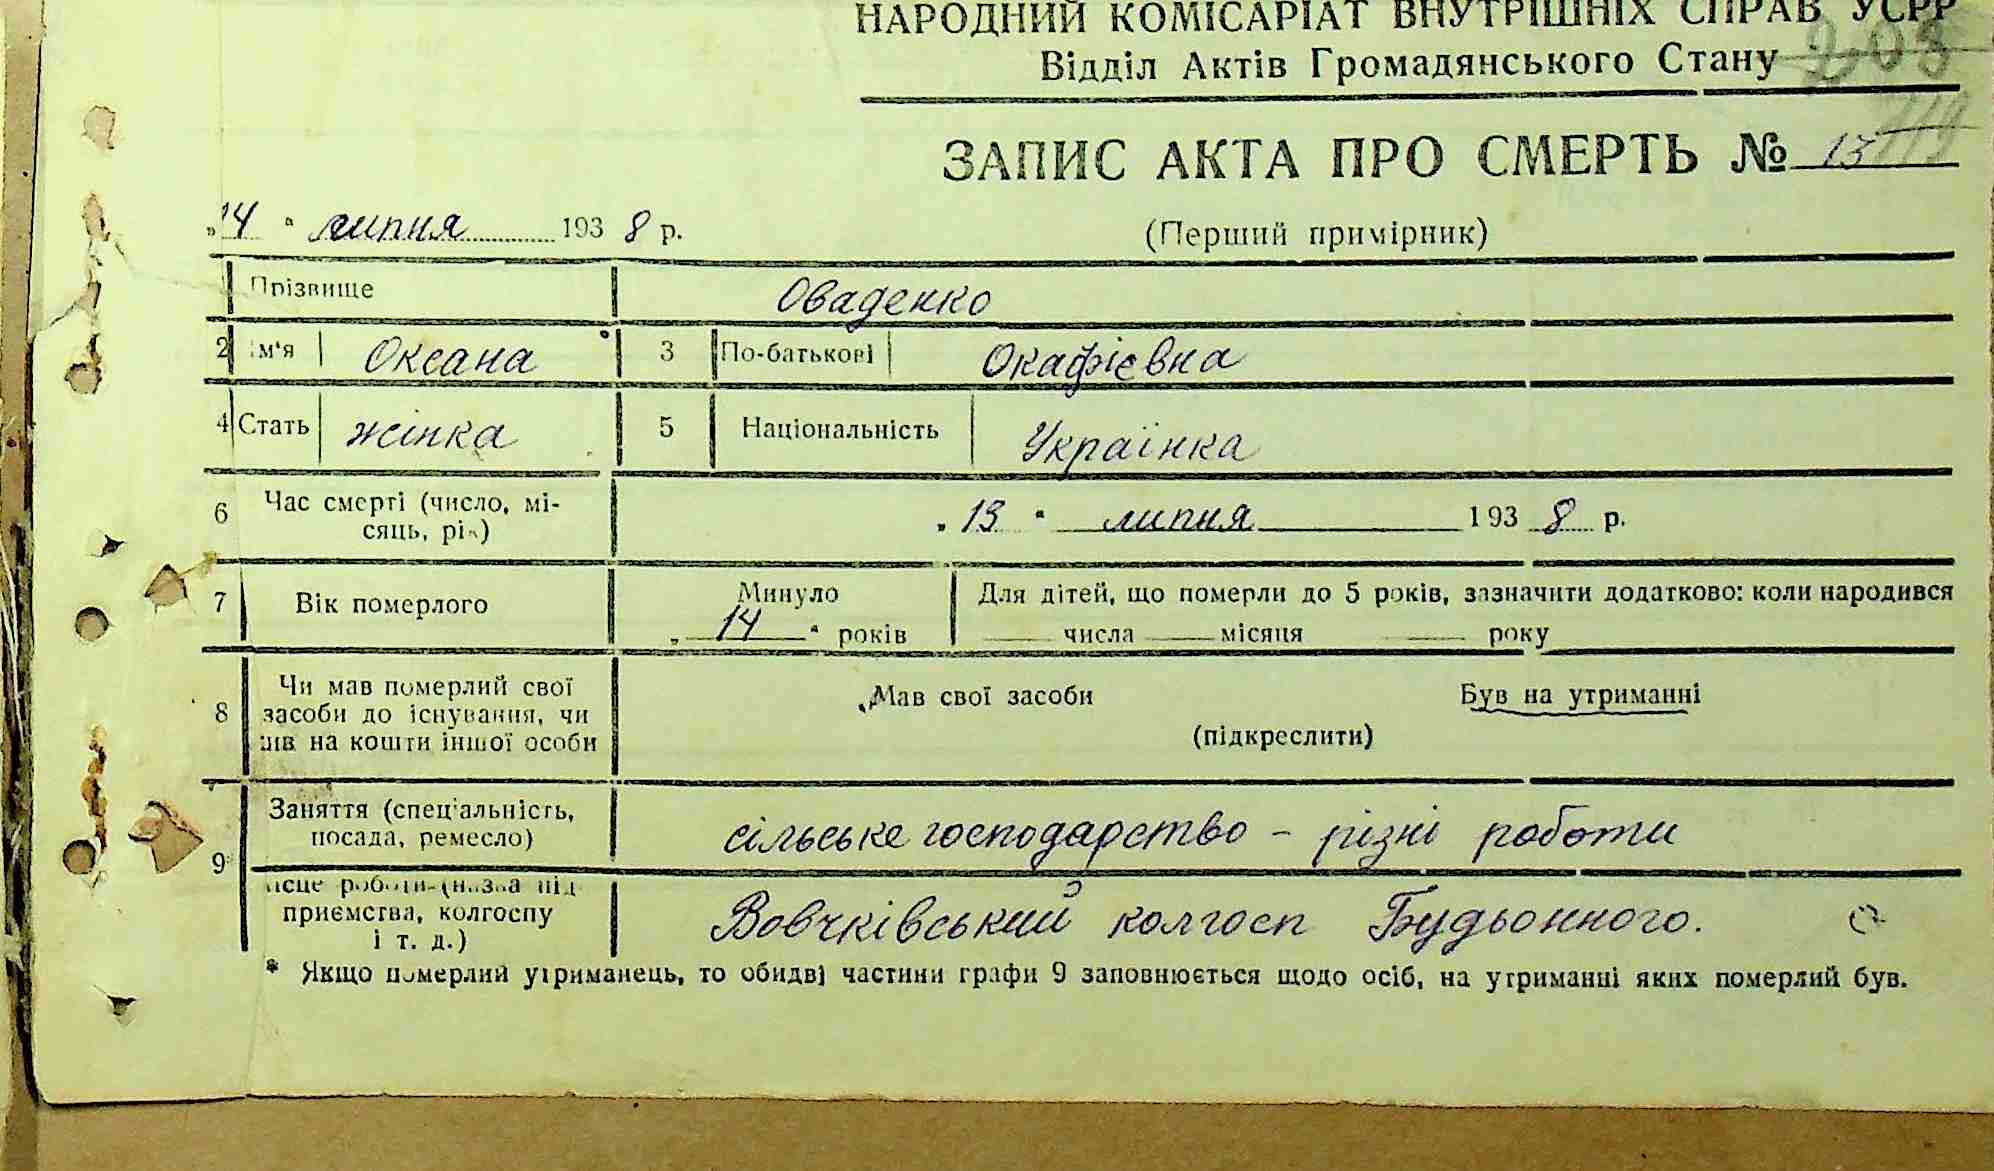 НАРОДНИЙ КОМІСАРІАТ ВНУТРІШНІХ СПРАВ УСРР
Відділ Актів Громадянського Стану 208
119
ЗАПИС АКТА ПРО СМЕРТЬ № 13
„14" липня 1938 р.
(Перший примірник)
Прізвище Оваденко
2 Ім'я Оксана 3 По-батькові Окафієвна
4 Стать жінка 5 Національність Українка
6 Час смерті (число, мі-
сяць, рік) „13" липня 1938 р.
7 Вік померлого Минуло „14" років
Для дітей, що померли до 5 років, зазначити додатково: коли народився
числа місяця року
8 Чи мав померлий свої
засоби до існування, чи
жив на кошти іншої особи
Мав свої засоби Був на утриманні
(підкреслити)
9 Заняття (спеціальність,
посада, ремесло) сільське господарство - різні роботи
місце роботи (назва під
приємства, колгоспу
і т. д.) Вовчківський колгосп Будьонного.
* Якщо померлий утриманець, то обидві частини графи 9 заповнюється щодо осіб, на утриманні яких померлий був.